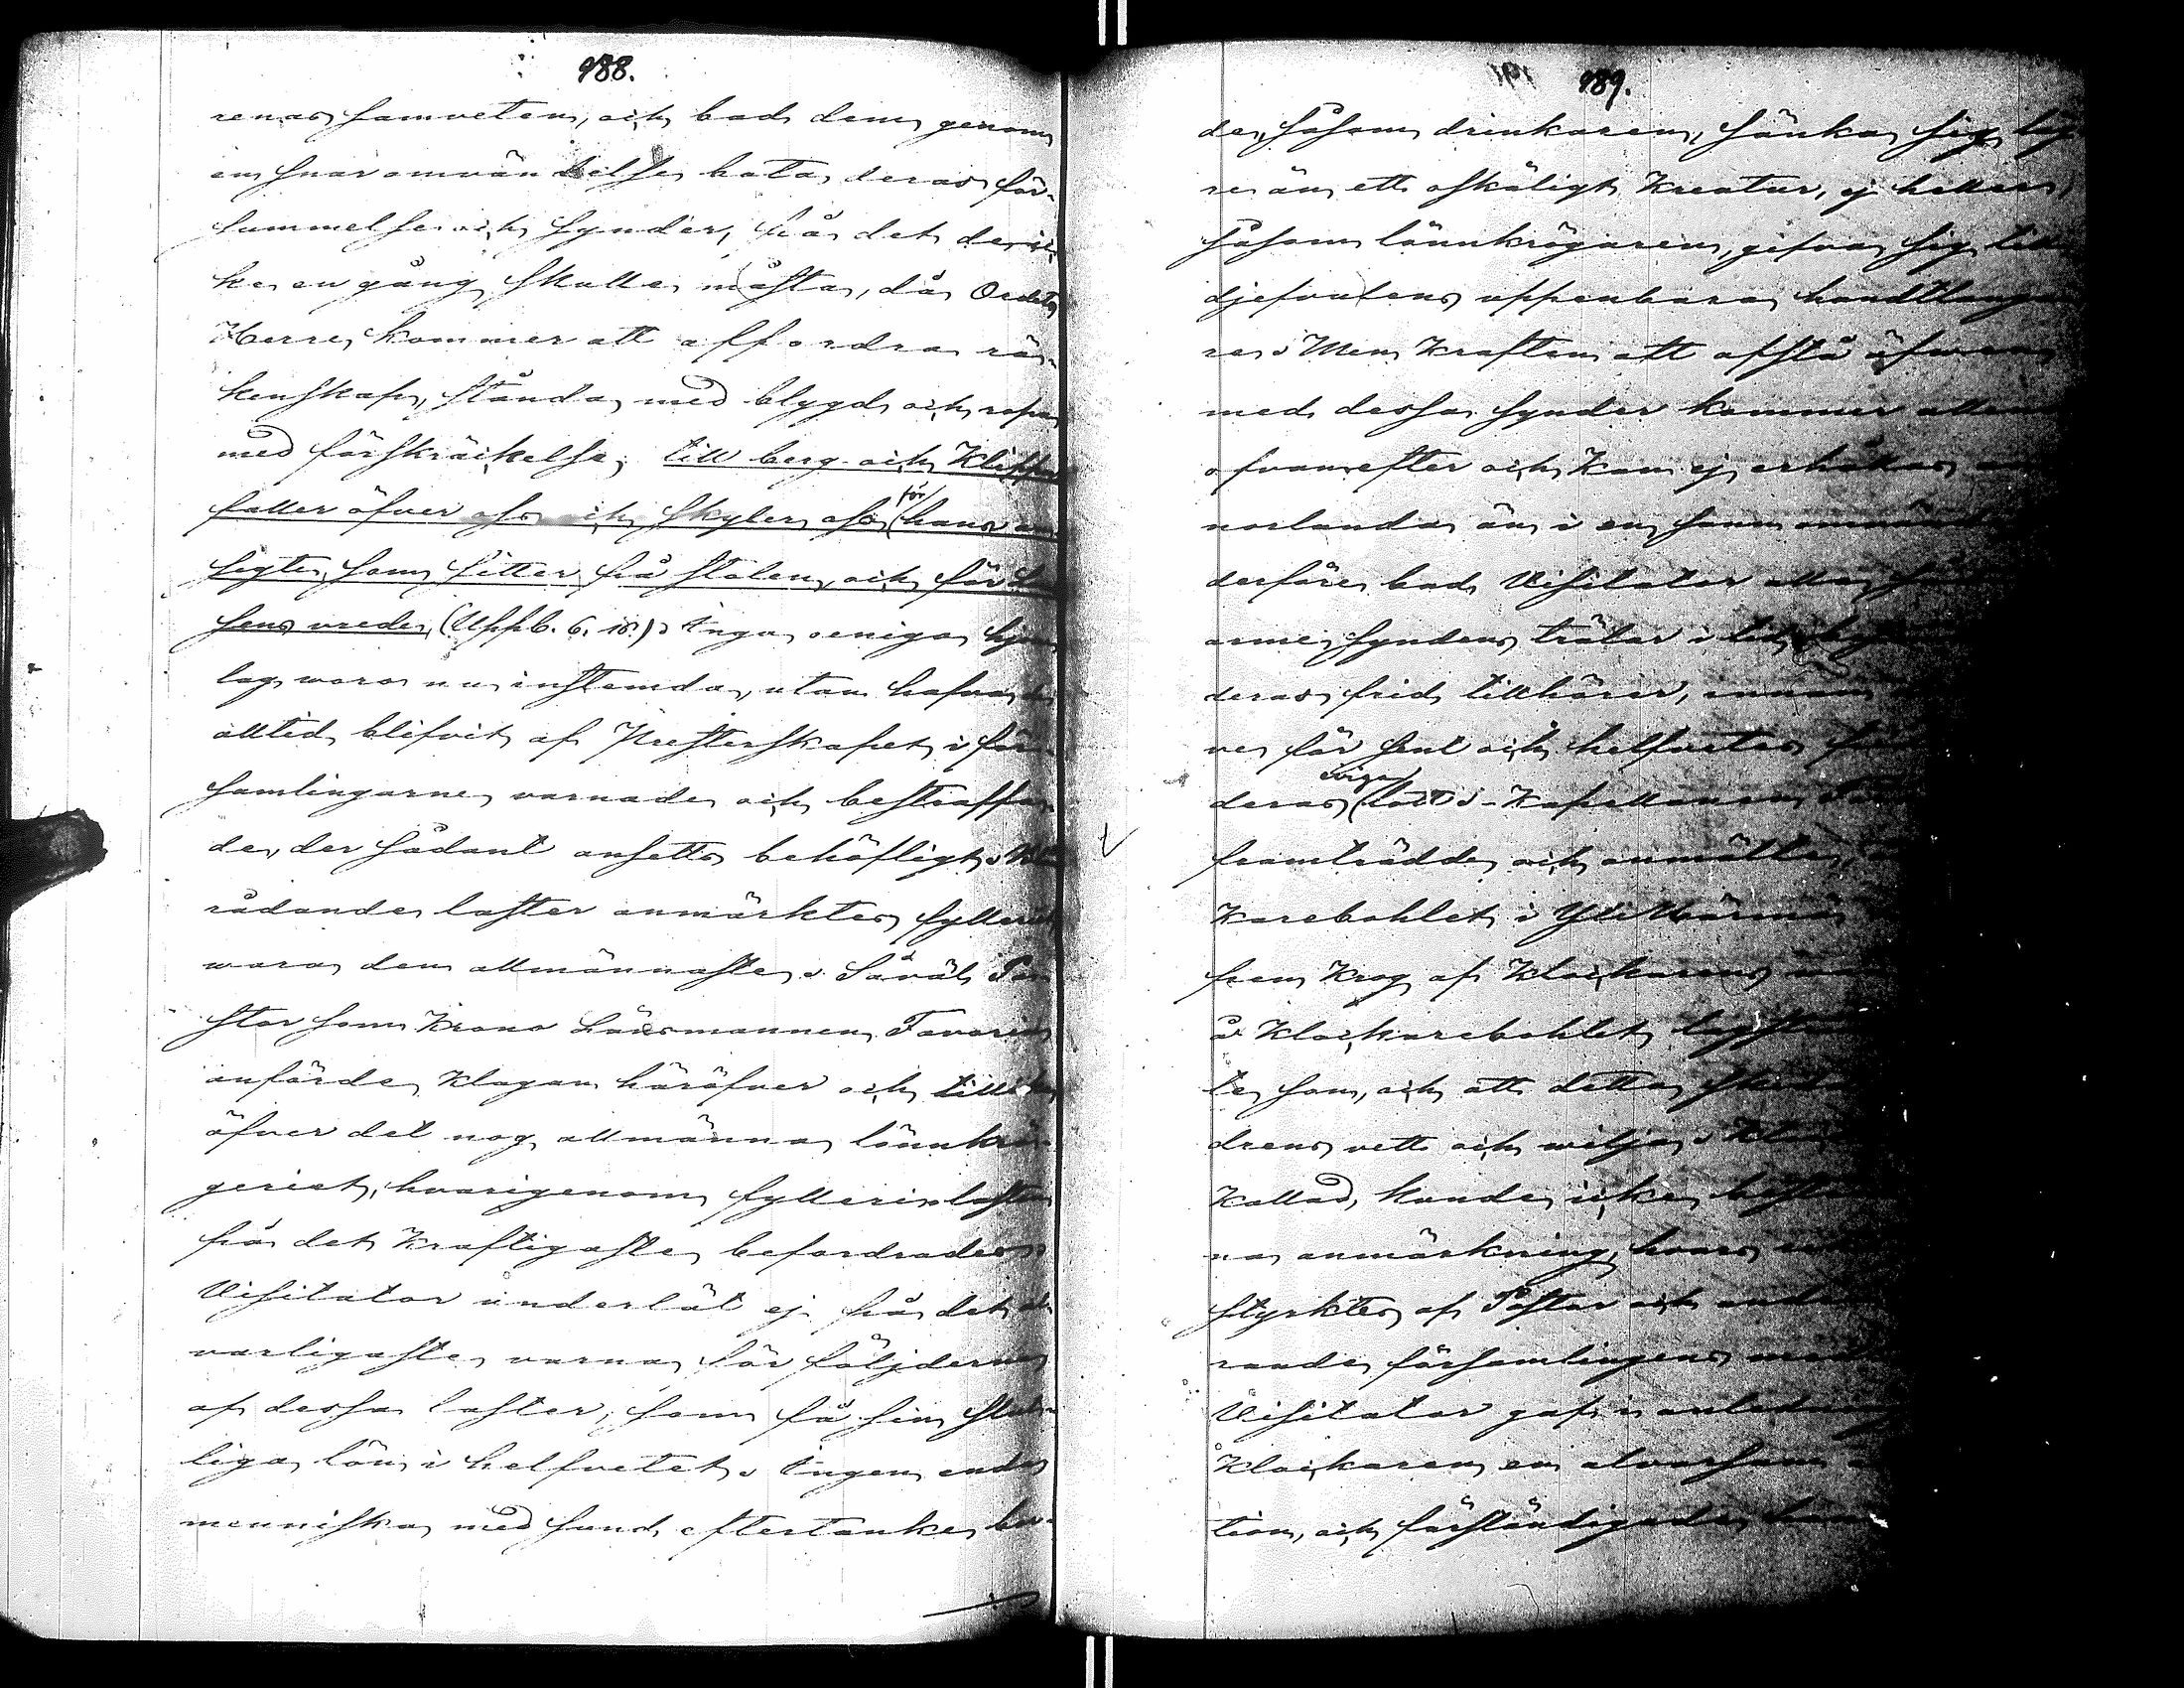 988.
renas samveten, och bad dem genom
en snar omvändelse bota deras för-
summelser och synder, på det de ic-
ke en gång skulle måsta, då Ordets
Herre kommer att affordra rä-
kenskap, stånda med blygd och ropa
med förskräckelse; till berg och Klippor
faller öfver oss och skyler oss för hans an-
sigte, som sitter på stolen, och för Lam-
sens vrede, (Uppb. 6. 16.). Inga oeniga hjon
lag woro nu instemda, utan hafva de
alltid blifvit af Presterskapet i för-
samlingarne varnade och bestraffa-
de, der sådant ansetts behöfligt.
rådande laster anmärktes fylleriet
wara den allmännaste. Såväl Pa-
stor som Krono Länsmannen Tavorin
anförde klagan häröfver och tillika
öfver det nog allmänna lönnkrö-
geriet, hvarigenom fyllerilasten
på det kraftigaste befordrades.
Visitator underlät ej på det al-
varligaste varna för följderna
af dessa laster, som få sin slut-
liga lön i helfvetet. Ingen enda
menniska med sund eftertanke bor-
989.
de, såsom drinkaren, sänka sig läg-
re än ett oskäligt Kreatur, ej heller,
såsom lönnkrögaren, gifva sig till
djefvulens uppenbara handtlanga-
re. Men kraften att afstå äfwen
med dessa synder kommer allena
ofvanefter och kan ej erhållas an-
norlunda än i en sann omvänd
derföre bad Visitator alla
arme syndens trälar i tid
deras frid tillhörer, innan
ve för sent och helfvetes
deras eviga lott. Kapellanen
framträdde och anmälte,
karebohlet i Yli Wärmä
pen krog af Klockarens
å Klockarebohlet
te son, och att detta
drens vett och wilja.
kallad, kunde icke
na anmärkning, hvars
styrktes af Pastor och
rande församlingens
Visitator gaf i anledning
Klockaren en alvarsam
tion, och förständigade